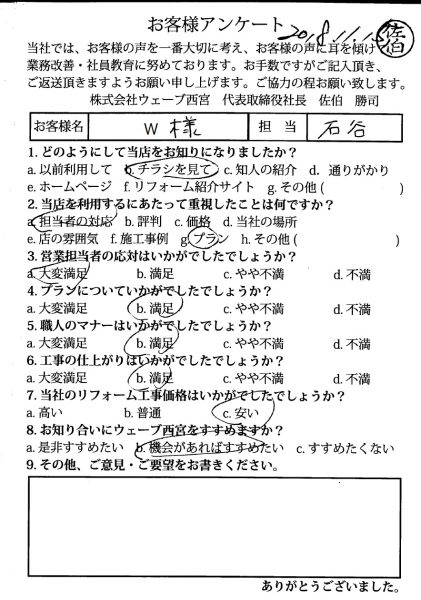 お客様アンケート 2018.11.15 佐伯
当社では、お客様の声を一番大切に考え、お客様の声に耳を傾け
業務改善・社員教育に努めております。お手数ですがご記入頂き、
ご返送頂きますようお願い申し上げます。ご協力の程お願い致します。
株式会社ウェーブ西宮 代表取締役社長 佐伯 勝司
お客様名 W 様 担 当 石谷
1. どのようにして当店をお知りになりましたか？
a. 以前利用して b. チラシを見て c. 知人の紹介 d. 通りがかり
e. ホームページ f. リフォーム紹介サイト g. その他 ( )
2. 当店を利用するにあたって重視したことは何ですか？
a. 担当者の対応 b. 評判 c. 価格 d. 当社の場所
e. 店の雰囲気 f. 施工事例 g. プラン h. その他 ( )
3. 営業担当者の応対はいかがでしたでしょうか？
a. 大変満足 b. 満足 c. やや不満 d. 不満
4. プランについていかがでしたでしょうか？
a. 大変満足 b. 満足 c. やや不満 d. 不満
5. 職人のマナーはいかがでしたでしょうか？
a. 大変満足 b. 満足 c. やや不満 d. 不満
6. 工事の仕上がりはいかがでしたでしょうか？
a. 大変満足 b. 満足 c. やや不満 d. 不満
7. 当社のリフォーム工事価格はいかがでしたでしょうか？
a. 高い b. 普通 c. 安い
8. お知り合いにウェーブ西宮をすすめますか？
a. 是非すすめたい b. 機会があればすすめたい c. すすめたくない
9. その他、ご意見・ご要望をお書きください。
ありがとうございました。